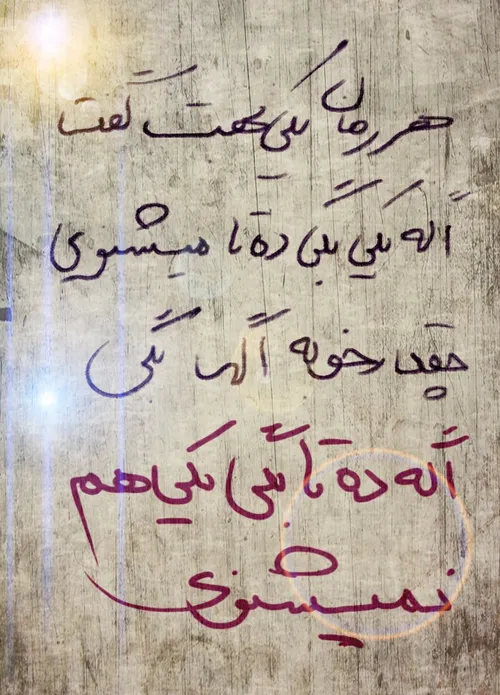 هر زمان یکی بهت گفت
اگه یکی بگی ده تا میشنوی
چقدر خوبه بگی
اگه ده تا بگی یکی هم
نمیشنوی